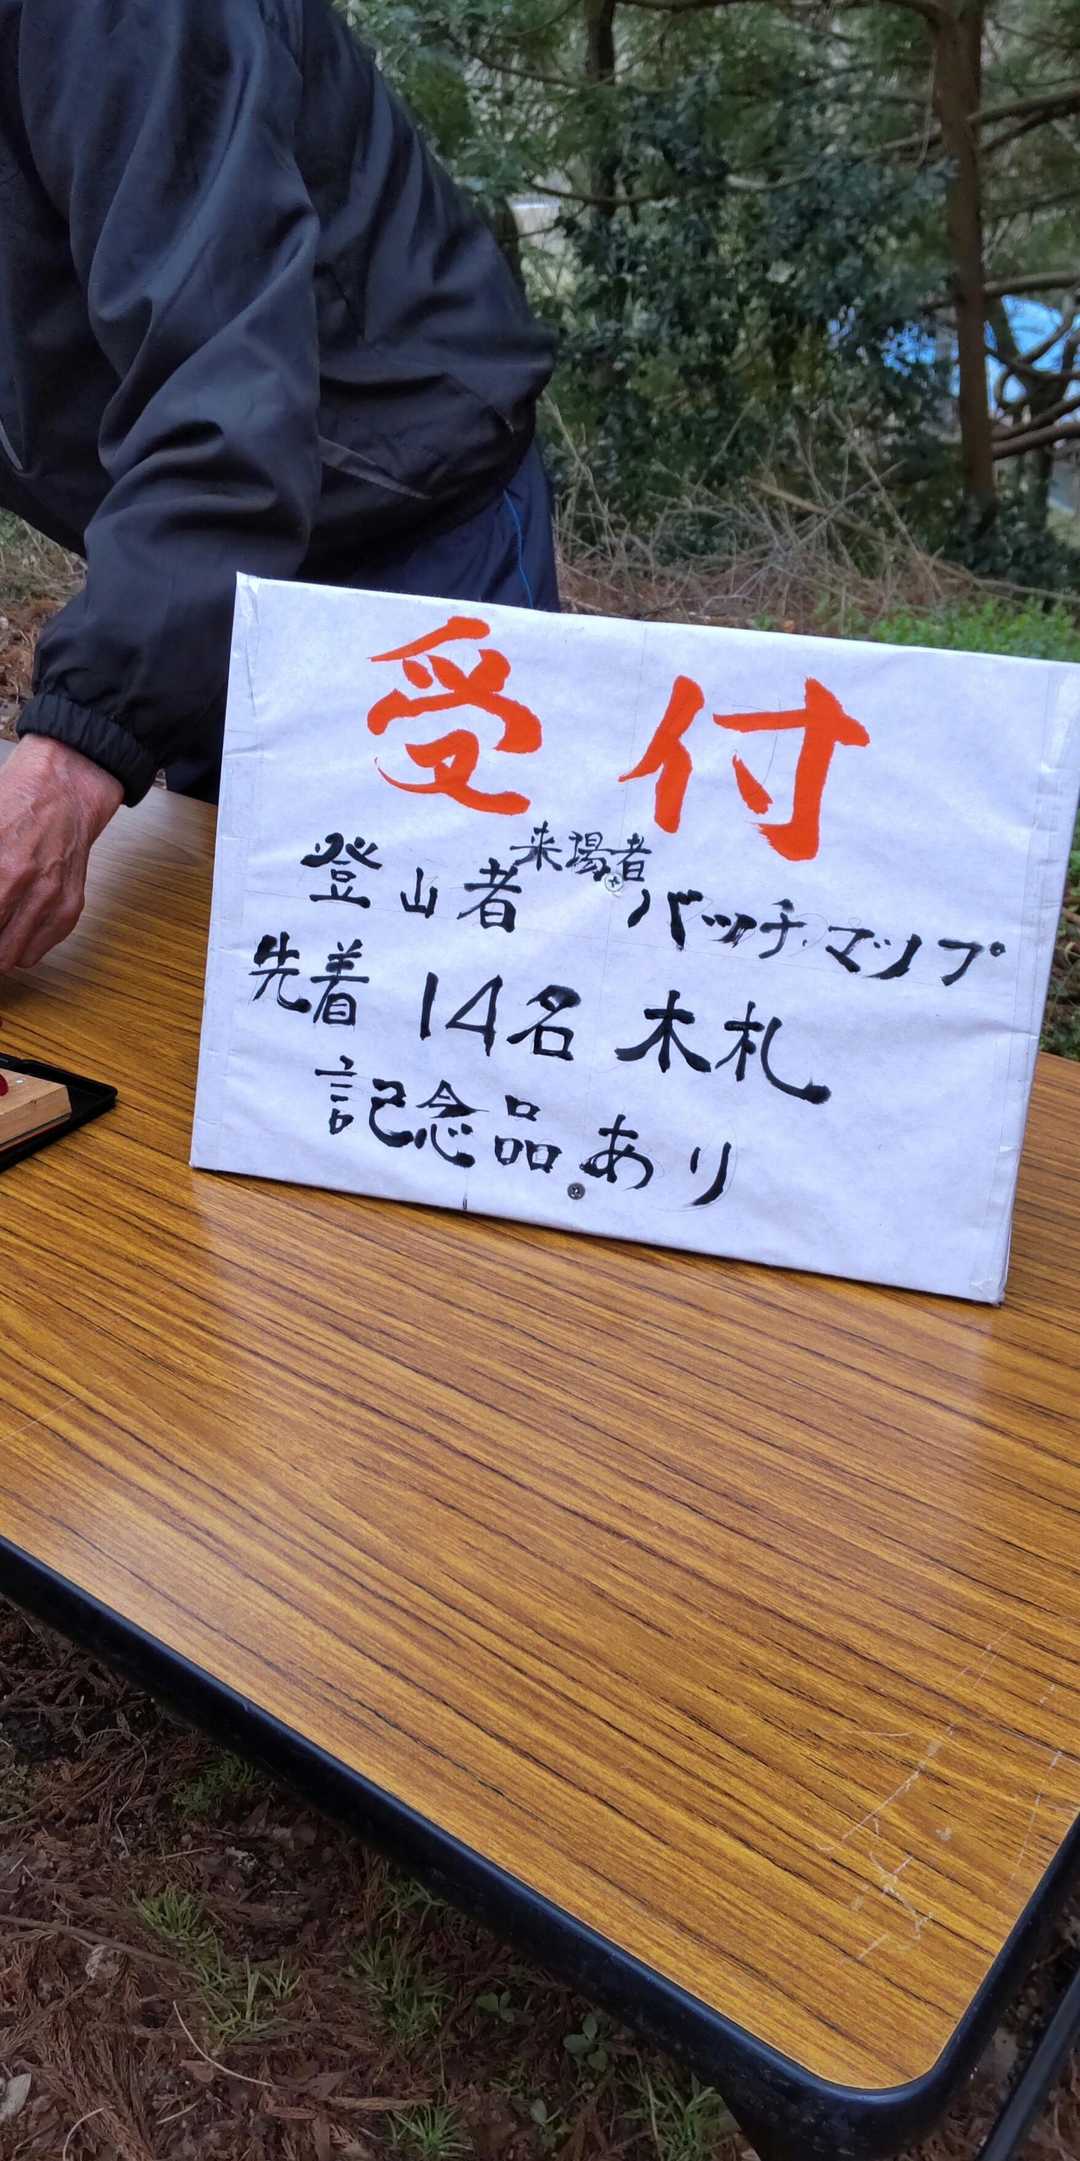 受付
登山者 来場者 バッチ.マップ
先着 14名 木札
記念品あり